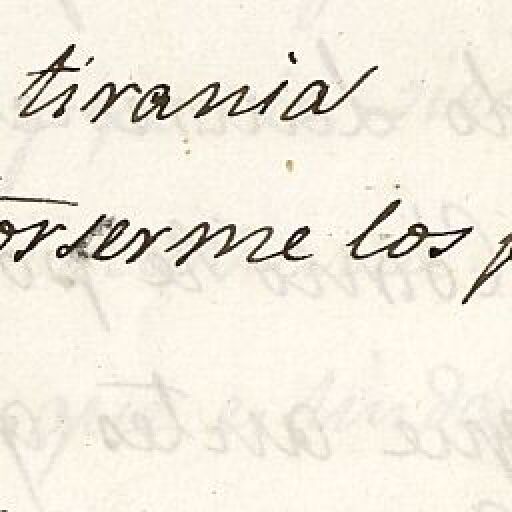 tirania
torserme los